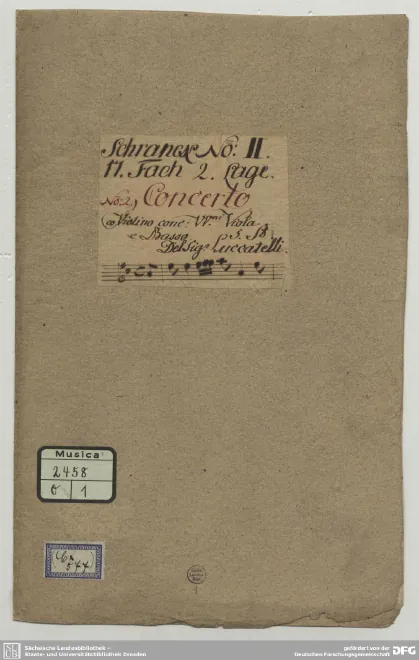 Schranck No: II.
17. Fach 2. Lage.
No: 2) Concerto
co Violino conc: VVni Viola
e Basso 5. St.
Del Sigr Luccatelli.
Musica
2458
O 1
Sächsische Landesbibliothek –
Staats- und Universitätsbibliothek Dresden
gefördert von der
Deutschen Forschungsgemeinschaft
DFG